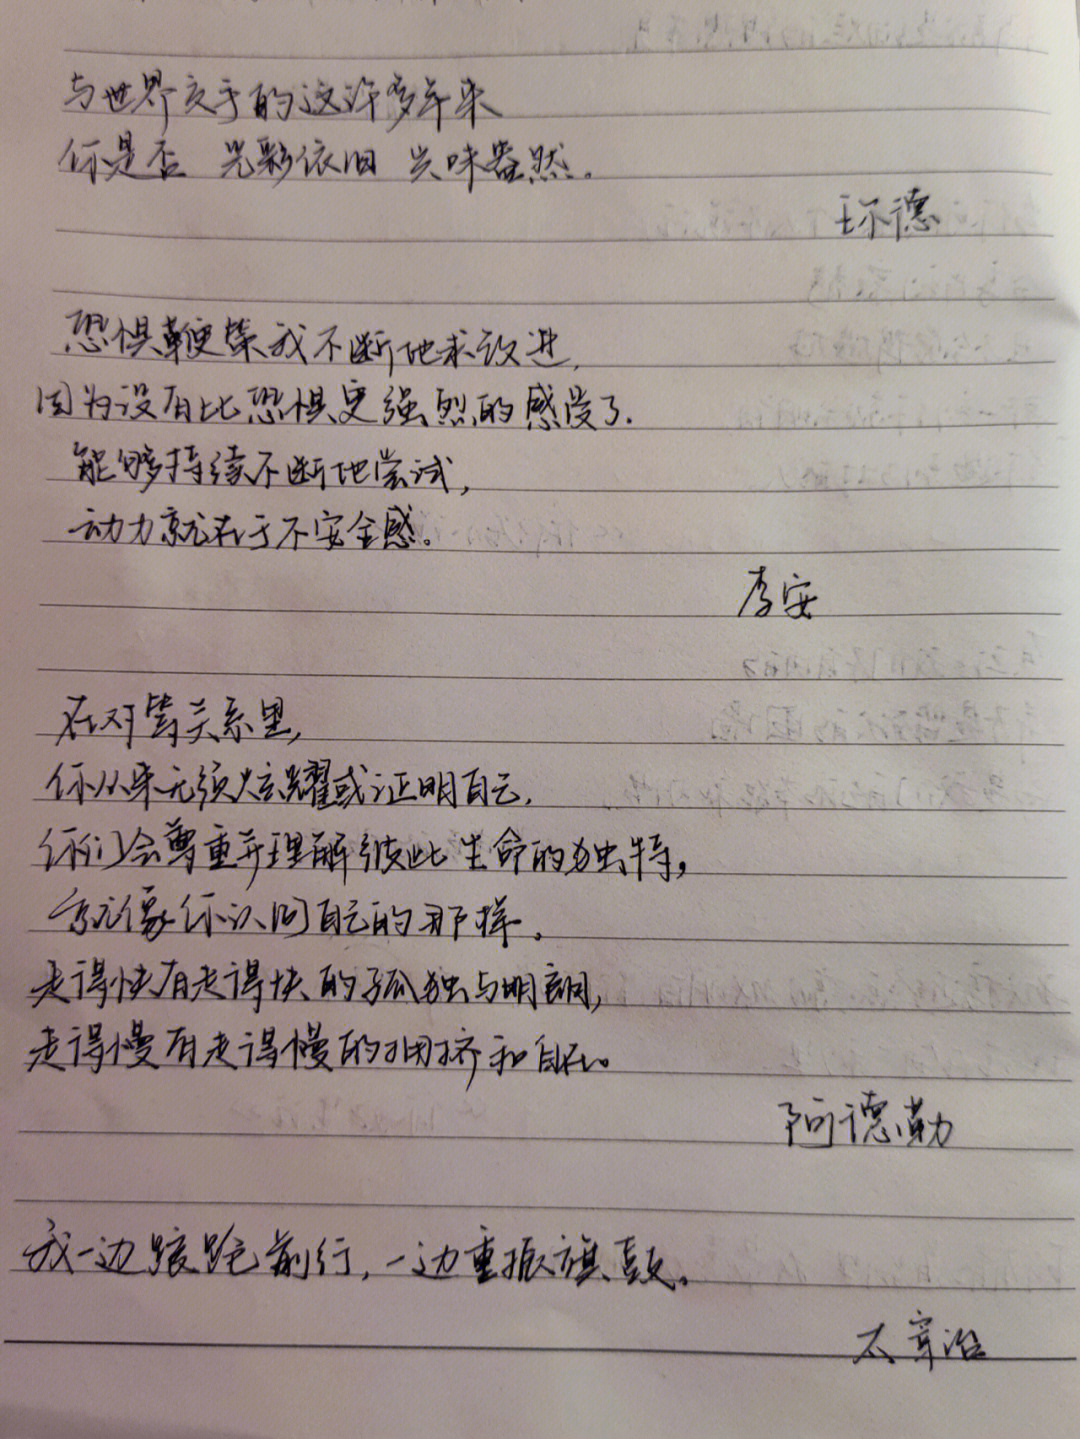 与世界交手的这许多年来
你是否 光彩依旧 兴味盎然。
王尔德
恐惧鞭策我不断地求改进,
因为没有比恐惧更强烈的感受了.
能够持续不断地尝试,
动力就在于不安全感。
李安
在对等关系里,
你从来无须炫耀或证明自己,
你们会尊重并理解彼此生命的独特,
就像你认同自己的那样.
走得快有走得快的孤独与明朗,
走得慢有走得慢的拥挤和自在。
阿德勒
我一边踉跄前行,一边重振旗鼓。
太宰治